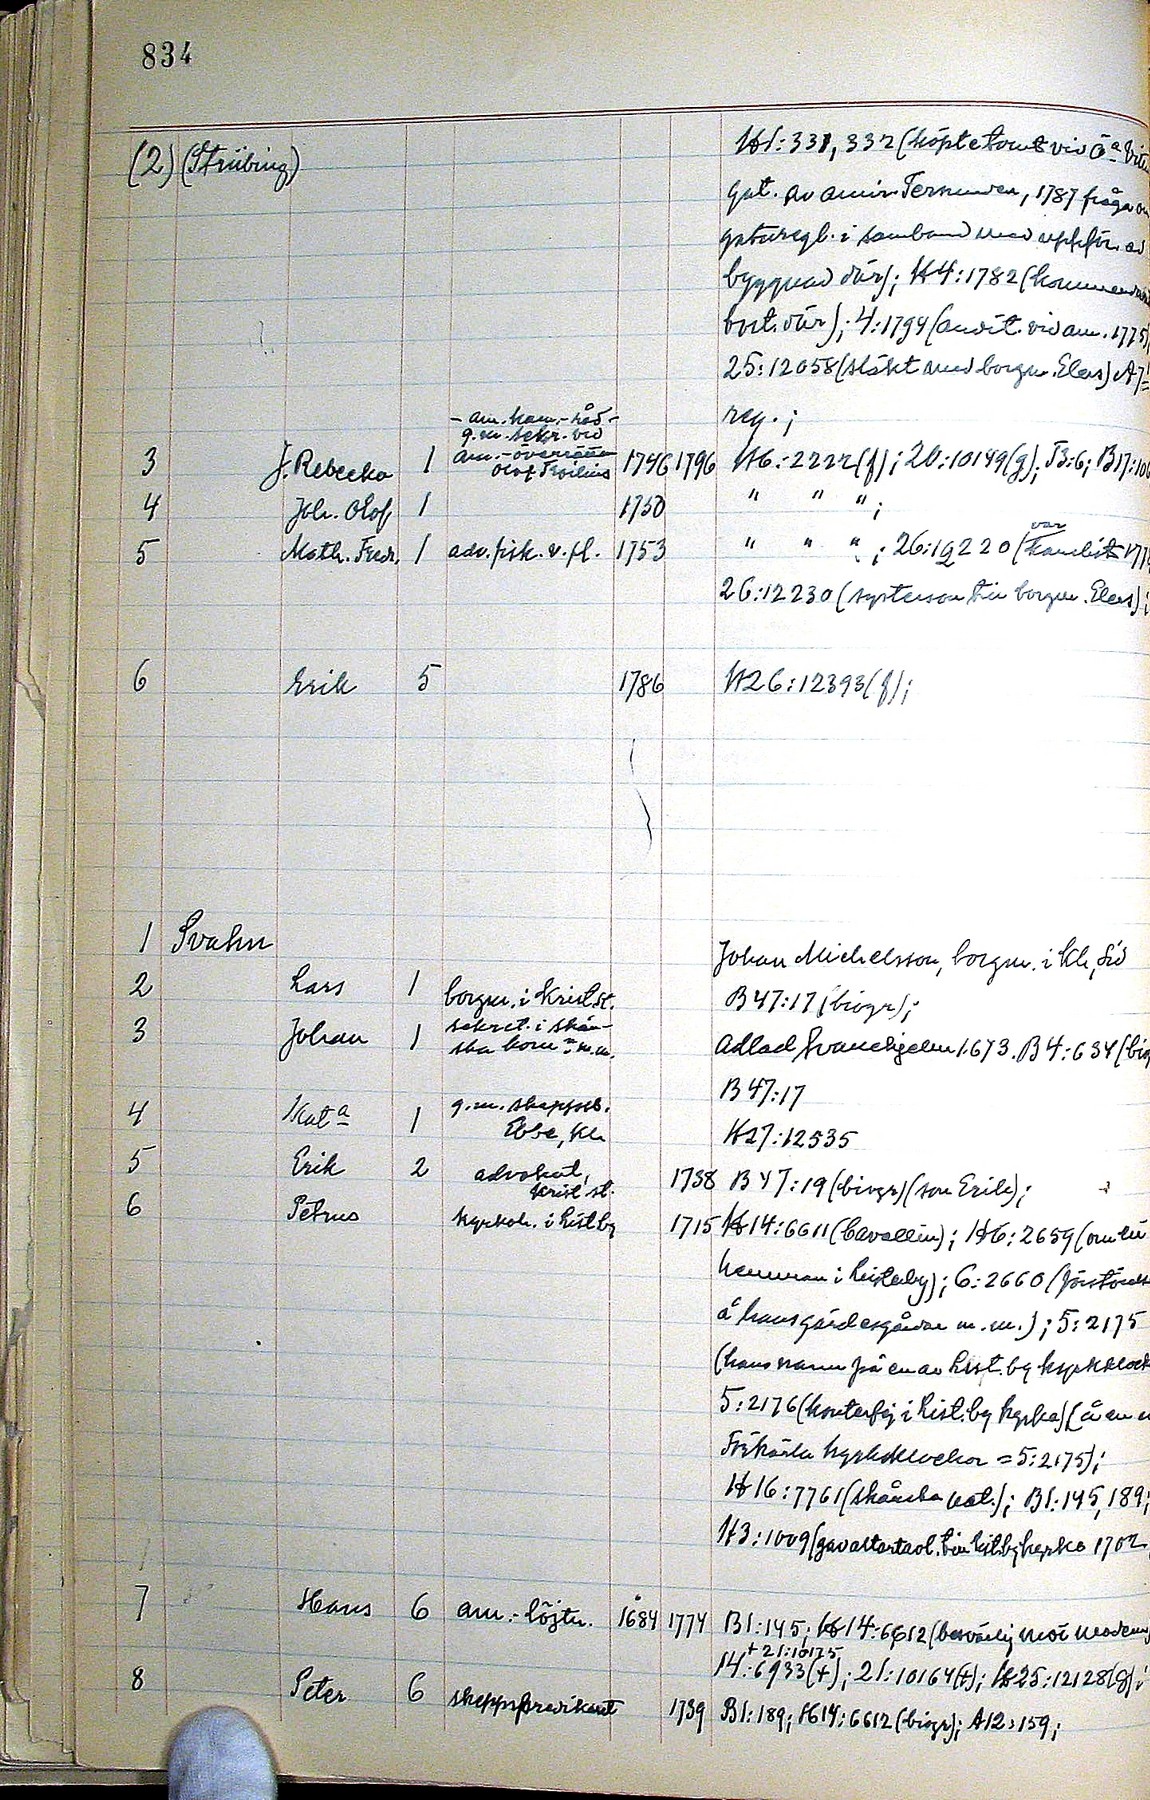 834
(2) (Strübing)
H1:331, 332 (köpte tomt vid Ö:a
gat. av amir. Tersmeden, 1787 fråga
gaturegl. i samband med uppför. av
byggnad där); H4:1782 (
bost. där); 4:1794 (audit. vid am. 1775)
25:12058 (släkt med borgm. Elers)
reg.;
- am. kam.-råd -
g. m. sekr. vid
am.-överrätten
Olof Troilius
3 J. Rebecka 1 1746 1796 H6:2222(f); 20:10149(g); B17:
4 Joh. Olof 1 1750 " " ";
var
5 Math. Fredr. 1 adv. fisk. v. fl. 1753 " " "; 26:12220 (
26:12230 (systerson till borgm. Elers);
6 Erik 5 1786 H26:12393(f);
1 Svahn Johan Michelsson, borgm. i Kh,
2 Lars 1 borgm. i Kristst. B47:17 (biogr);
3 Johan 1 sekret. i skån-
ska kom:n m.m. Adlad Svanehjelm 1673. B4:634 (
B47:17
4 Kat:a 1 g. m. skeppsb.
Ebbe, Kh H27:12535
5 Erik 2 advokat,
Krist.st. 1738 B47:19 (biogr) (son Erik);
6 Petrus kyrkoh. i Listby 1715 H14:6611 (Cavallin); H6:2659 (om
hemman i Listerby); 6:2660 (
å hans gärdesgårdar m. m.); 5:2175
(hans namn på en av List.by kyrkklock
5:2176 (konterfej i List.by kyrka) (å en
Förkärla kyrkklockor = 5:2175);
H16:7761 (skånska nat.); B1:145, 189;
H3:1009 (gav altartavl. till List.by kyrka 1702
7 Hans 6 am.-löjtn. 1684 1774 B1:145; H14:6612 (besvärlig mot
+ 21:10175
14:6933(+); 21:10164(+); H25:12128(g);
8 Peter 6 skeppspredikant 1739 B1:189; H14:6612 (biogr); A12:159;